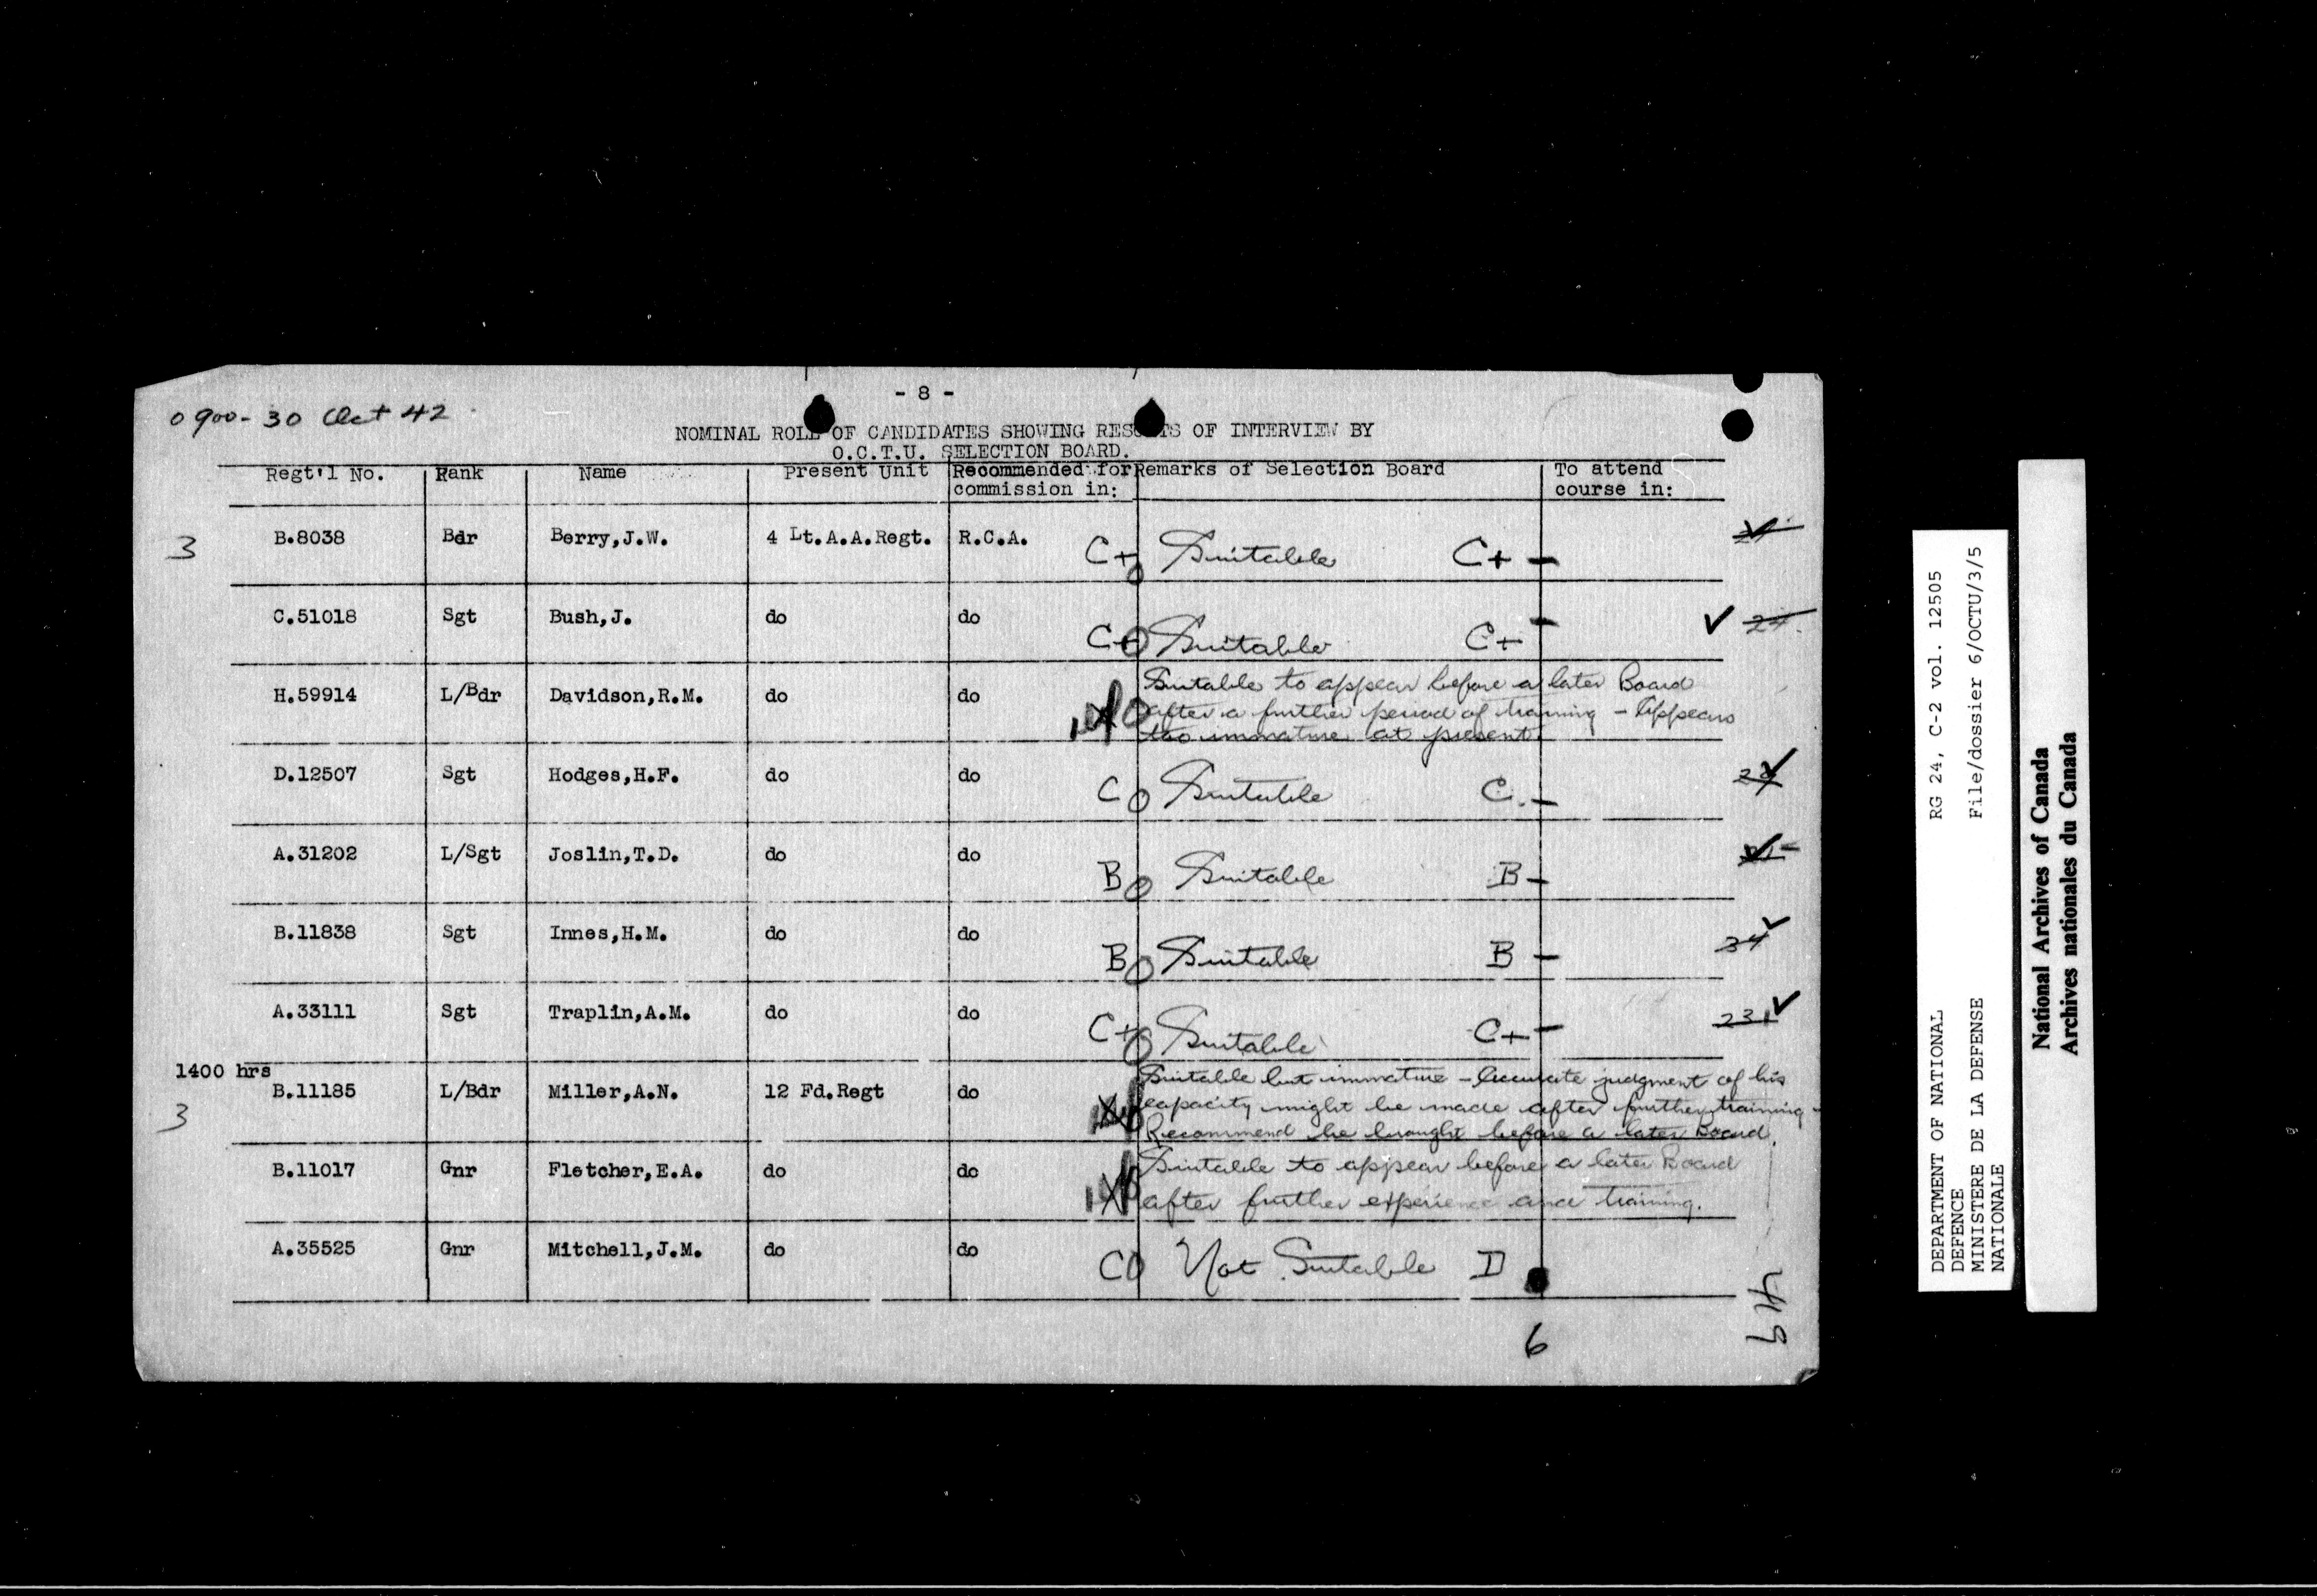 - 8 -
0900 - 30 Oct 42
NOMINAL ROLL OF CANDIDATES SHOWING RESULTS OF INTERVIEW BY
O.C.T.U. SELECTION BOARD.
Regt'l No. Rank Name Present Unit Recommended for commission in: Remarks of Selection Board To attend course in:
3 B.8038 Bdr Berry,J.W. 4 Lt.A.A.Regt. R.C.A. C+ Suitable C+ -
C.51018 Sgt Bush,J. do do C+ Suitable C+ - ✓ 24
H.59914 L/Bdr Davidson,R.M. do do Suitable to appear before a later Board
after a further period of training - Appears
too immature at present.
D.12507 Sgt Hodges,H.F. do do C Suitable C. - ✓
A.31202 L/Sgt Joslin,T.D. do do B Suitable B - ✓
B.11838 Sgt Innes,H.M. do do B Suitable B - 34 ✓
A.33111 Sgt Traplin,A.M. do do C+ Suitable C+ - 23 ✓
1400 hrs
3 B.11185 L/Bdr Miller,A.N. 12 Fd.Regt do Suitable but immature - Accurate judgment of his
capacity might be made after further training -
Recommend he brought before a later Board.
B.11017 Gnr Fletcher,E.A. do do Suitable to appear before a later Board
after further experience and training.
A.35525 Gnr Mitchell,J.M. do do C Not Suitable D
6
419
DEPARTMENT OF NATIONAL
DEFENCE
MINISTERE DE LA DEFENSE
NATIONALE
RG 24, C-2 vol. 12505
File/dossier 6/OCTU/3/5
National Archives of Canada
Archives nationales du Canada